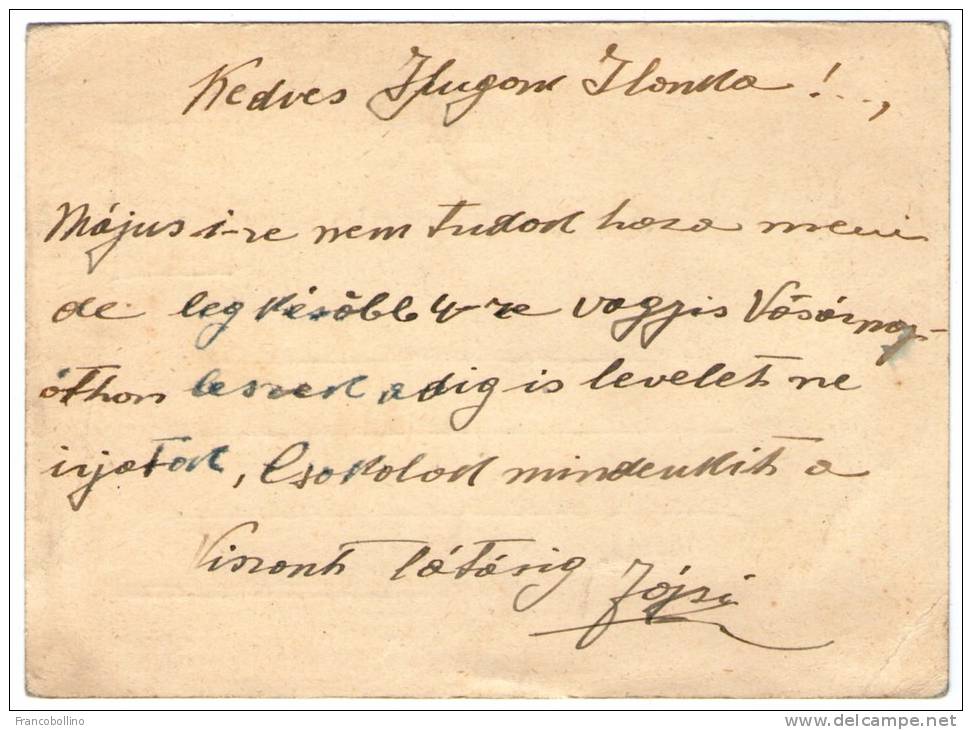 Kedves Hugom Ilonka !..,
Május 1-re nem tudok haza meni
de leg később 4-re vagyis Vásárnap-
othon leszek adig is levelet ne
irjatok, Csokolok mindenkit a
Viszont látásig Józsi
Francobollino
www.delcampe.net